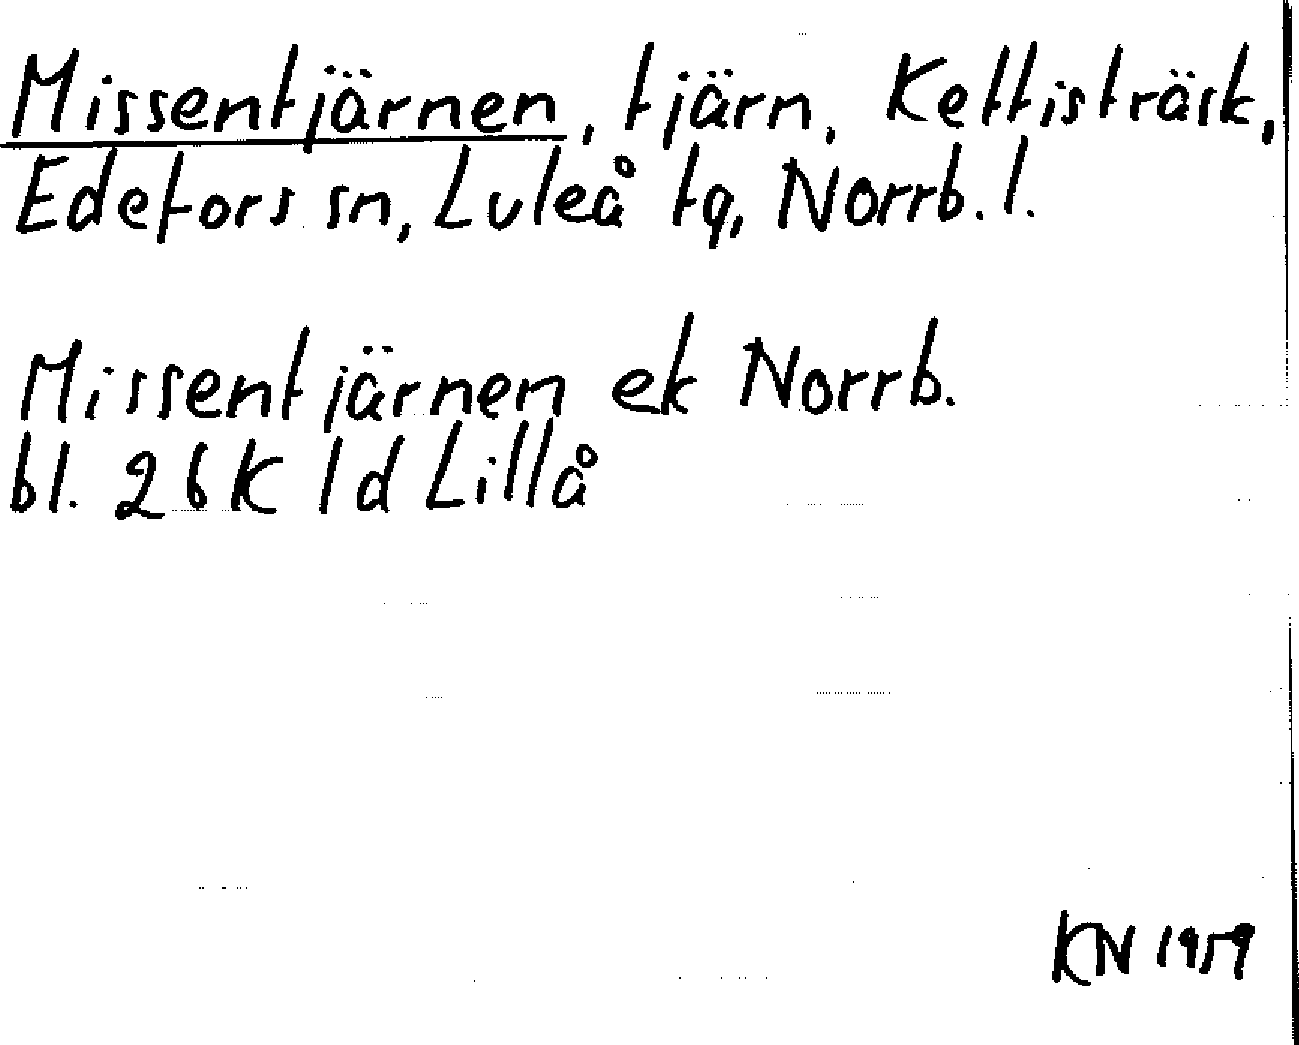 Missentjärnen, tjärn, Kettisträsk,
Edefors sn, Luleå tg, Norrb. l.
Missentjärnen ek Norrb.
bl. 26 K 1d Lillå
KN 1959